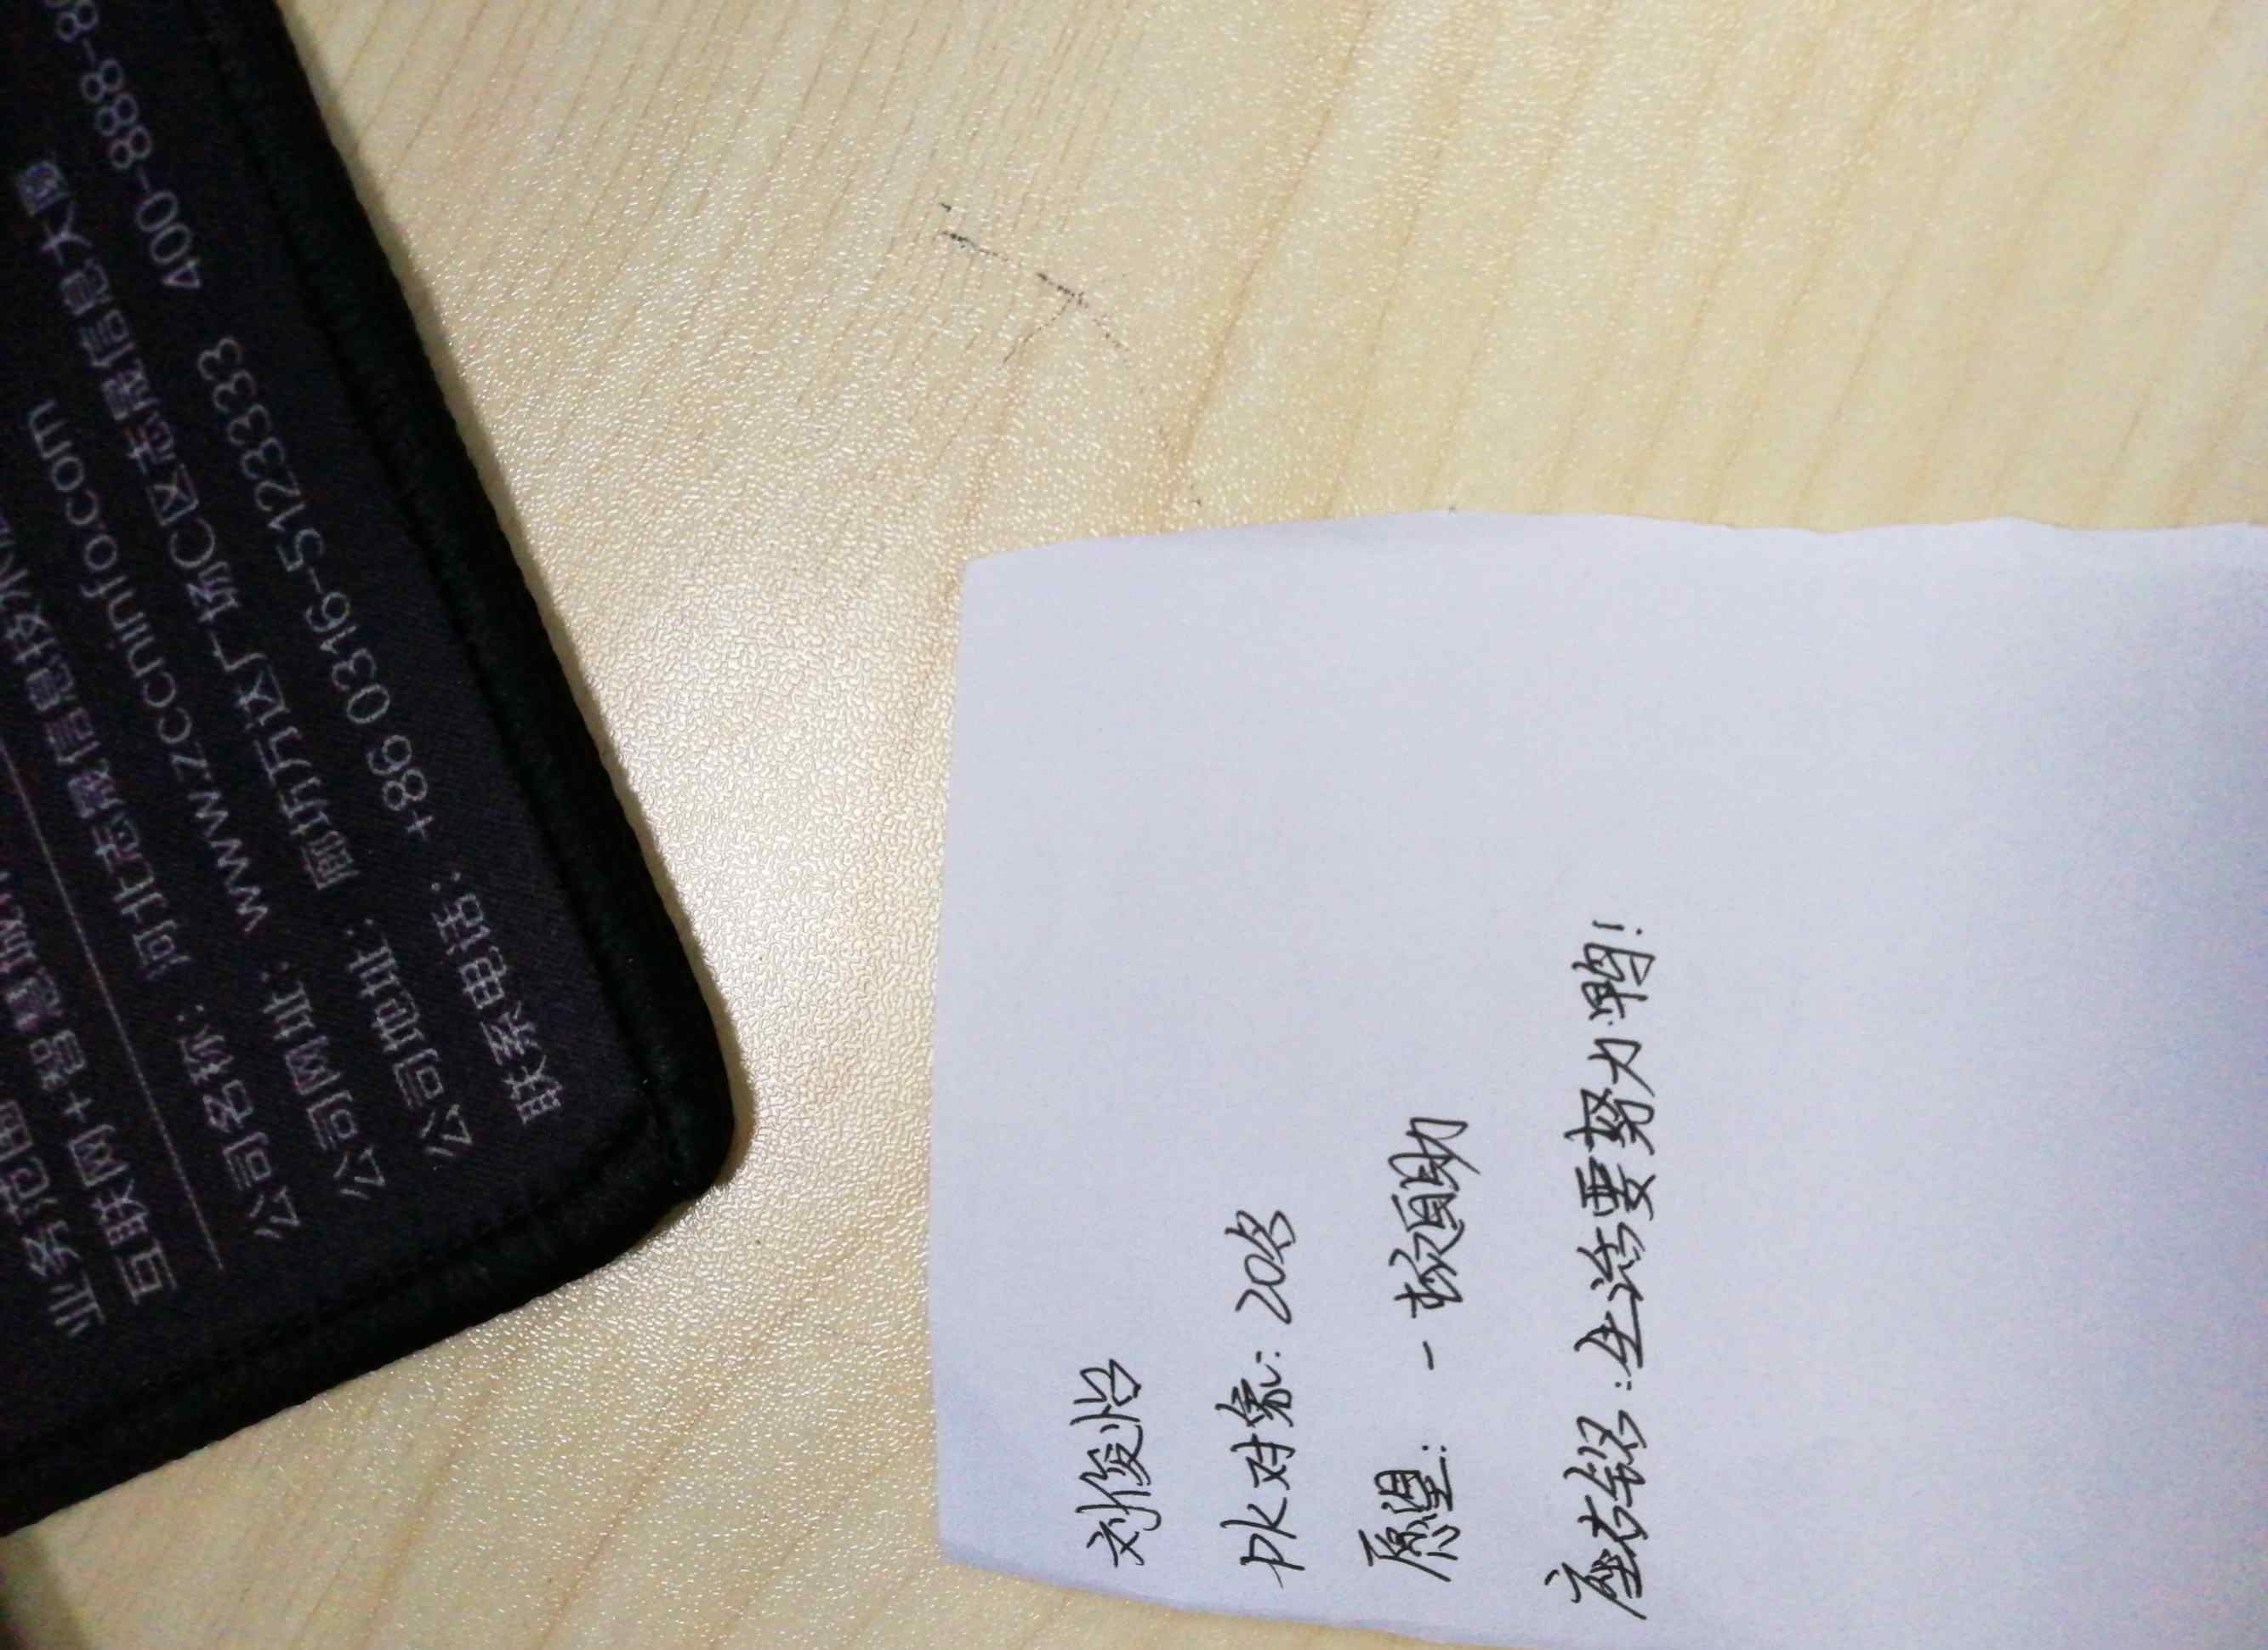 业务范围
互联网+智慧
公司名称：河北志晟信息技术
公司网址：www.zccninfo.com
公司地址：廊坊万达广场C区志晟信息大厦
联系电话：+86 0316-5123333 400-888-8
刘俊怡
PK对象：20名
愿望：一顿自助
座右铭：生活需要努力鸭！